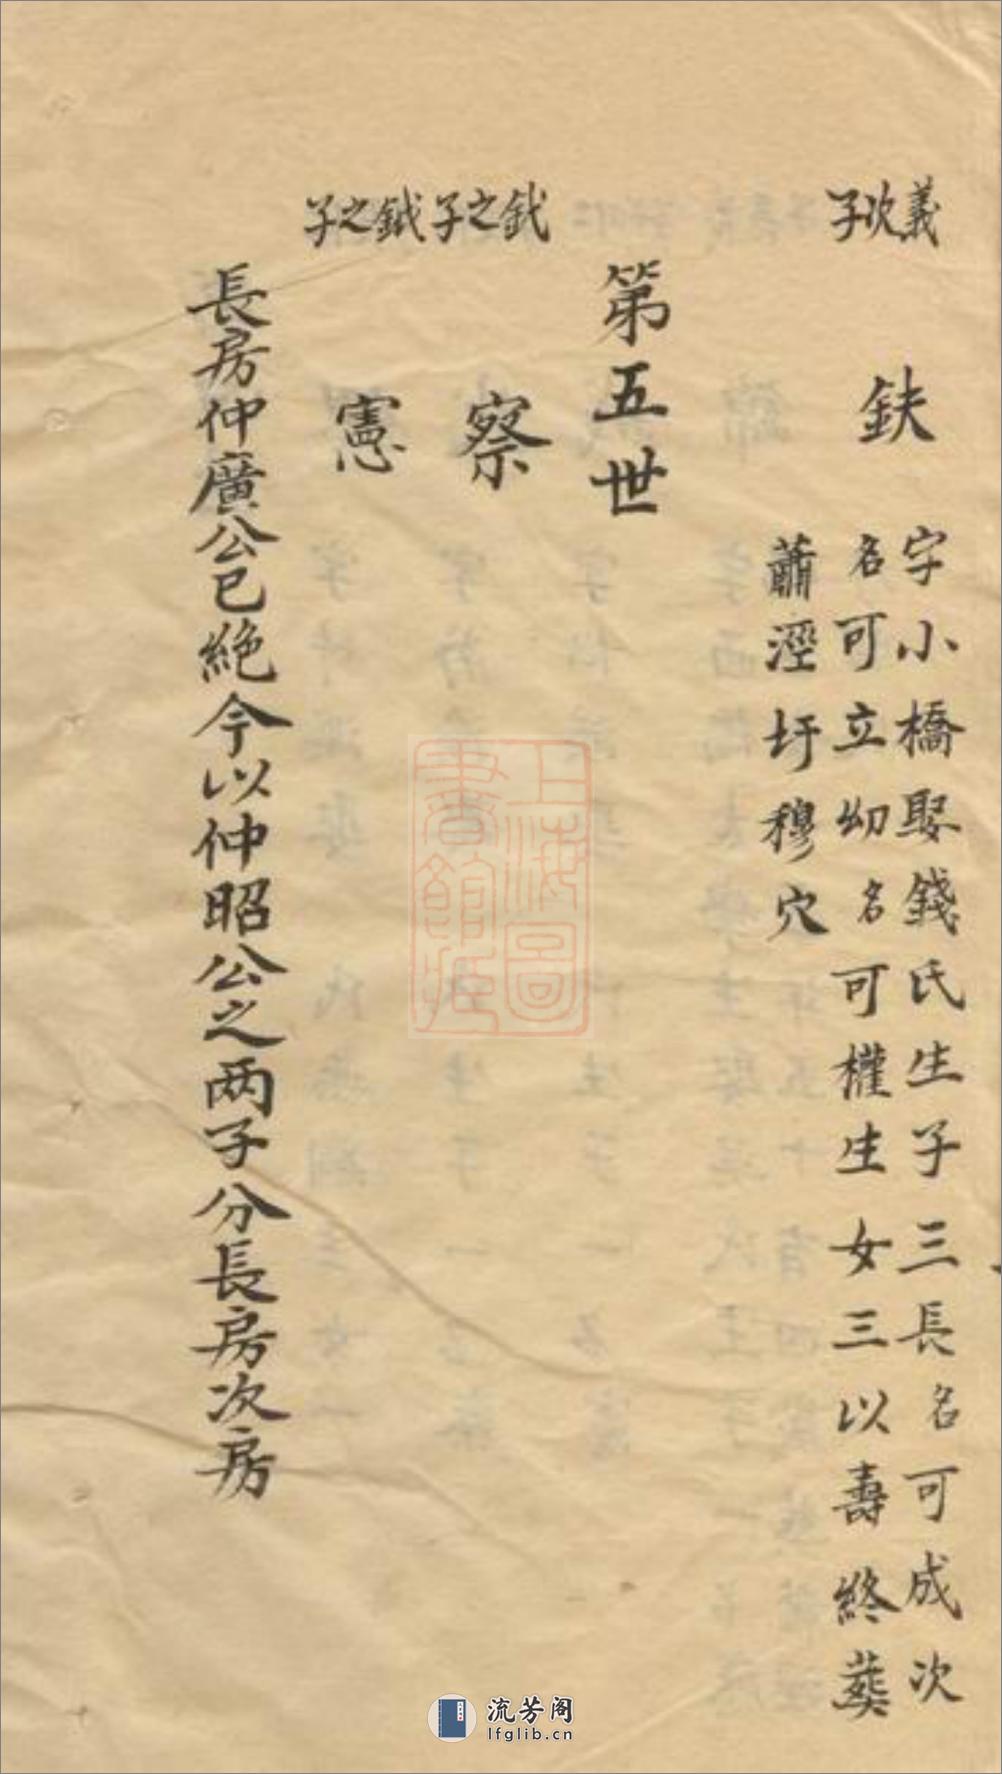 義次子
鈇
字小橋娶錢氏生子三長名可成次
名可立幼名可權生女三以壽終葬
蕭涇圩穆穴
第五世
鈛之子
察
鉞之子
憲
長房仲廣公已絶今以仲昭公之两子分長房次房
上海圖書館藏
流芳阁
lfglib.cn